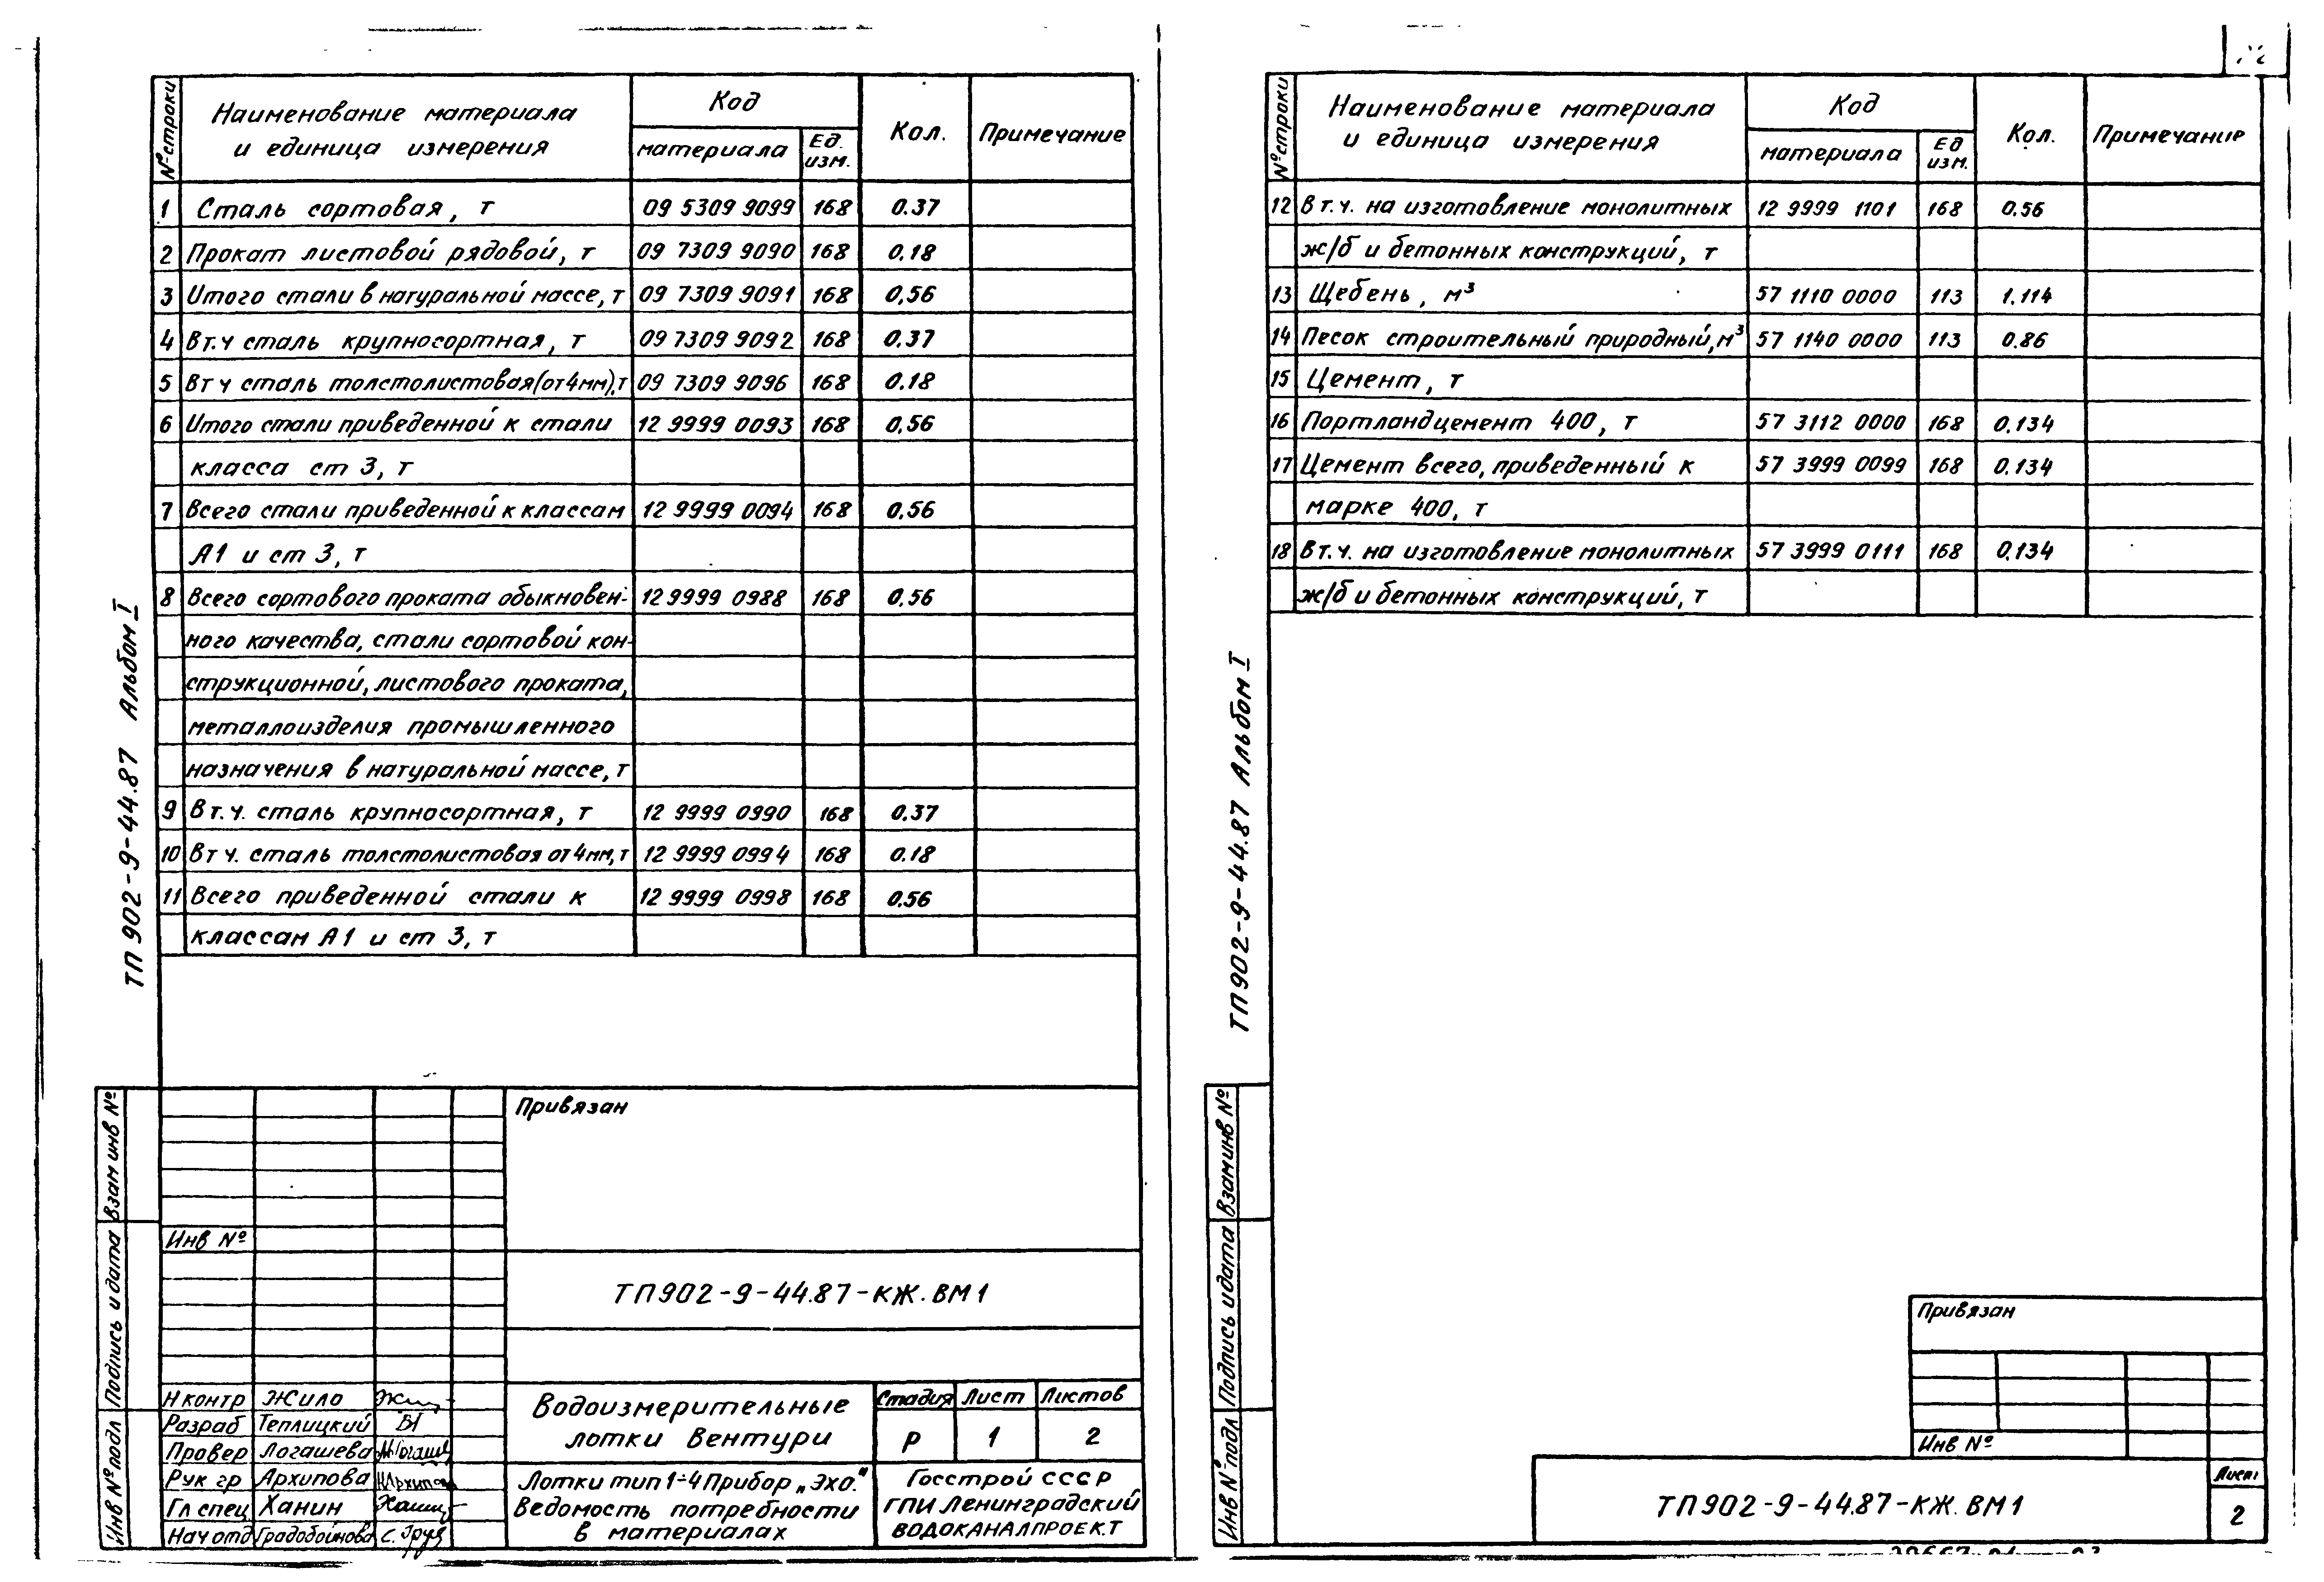 № строки
Наименование материала
и единица измерения
Код
материала
Ед.
изм.
Кол.
Примечание
1 Сталь сортовая, т 09 5309 9099 168 0.37
2 Прокат листовой рядовой, т 09 7309 9090 168 0.18
3 Итого стали в натуральной массе, т 09 7309 9091 168 0,56
4 Вт.ч сталь крупносортная, т 09 7309 9092 168 0.37
5 Вт ч сталь толстолистовая (от 4мм), т 09 7309 9096 168 0.18
6 Итого стали приведенной к стали 12 9999 0093 168 0,56
класса ст 3, т
7 Всего стали приведенной к классам 12 9999 0094 168 0,56
А1 и ст 3, т
8 Всего сортового проката обыкновен- 12 9999 0988 168 0,56
ного качества, стали сортовой кон-
струкционной, листового проката,
металлоизделия промышленного
назначения в натуральной массе, т
9 Вт.ч. сталь крупносортная, т 12 9999 0990 168 0.37
10 Вт ч. сталь толстолистовая от 4мм, т 12 9999 0994 168 0.18
11 Всего приведенной стали к 12 9999 0998 168 0.56
классам А1 и ст 3, т
ТП 902-9-44.87 Альбом I
Взам инв №
Подпись и дата
Инв № подл
Привязан
Инв №
ТП902-9-44.87-КЖ.ВМ1
Н контр Жило
Разраб Теплицкий
Провер Логашева
Рук гр Архипова
Гл спец Ханин
Нач отд Градобойнова
Водоизмерительные
лотки Вентури
Стадия Лист Листов
Р 1 2
Лотки тип 1÷4 Прибор „Эхо."
Ведомость потребности
в материалах
Госстрой СССР
ГПИ Ленинградский
ВОДОКАНАЛПРОЕКТ
№ строки
Наименование материала
и единица измерения
Код
материала
Ед
изм.
Кол.
Примечание
12 Вт.ч. на изготовление монолитных 12 9999 1101 168 0.56
ж/б и бетонных конструкций, т
13 Щебень, м³ 57 1110 0000 113 1.114
14 Песок строительный природный, м³ 57 1140 0000 113 0.86
15 Цемент, т
16 Портландцемент 400, т 57 3112 0000 168 0.134
17 Цемент всего, приведенный к 57 3999 0099 168 0.134
марке 400, т
18 Вт.ч. на изготовление монолитных 57 3999 0111 168 0,134
ж/б и бетонных конструкций, т
ТП902-9-44.87 Альбом I
Взам инв №
Подпись и дата
Инв № подл
Привязан
Инв №
ТП902-9-44.87-КЖ.ВМ1
Лист
2